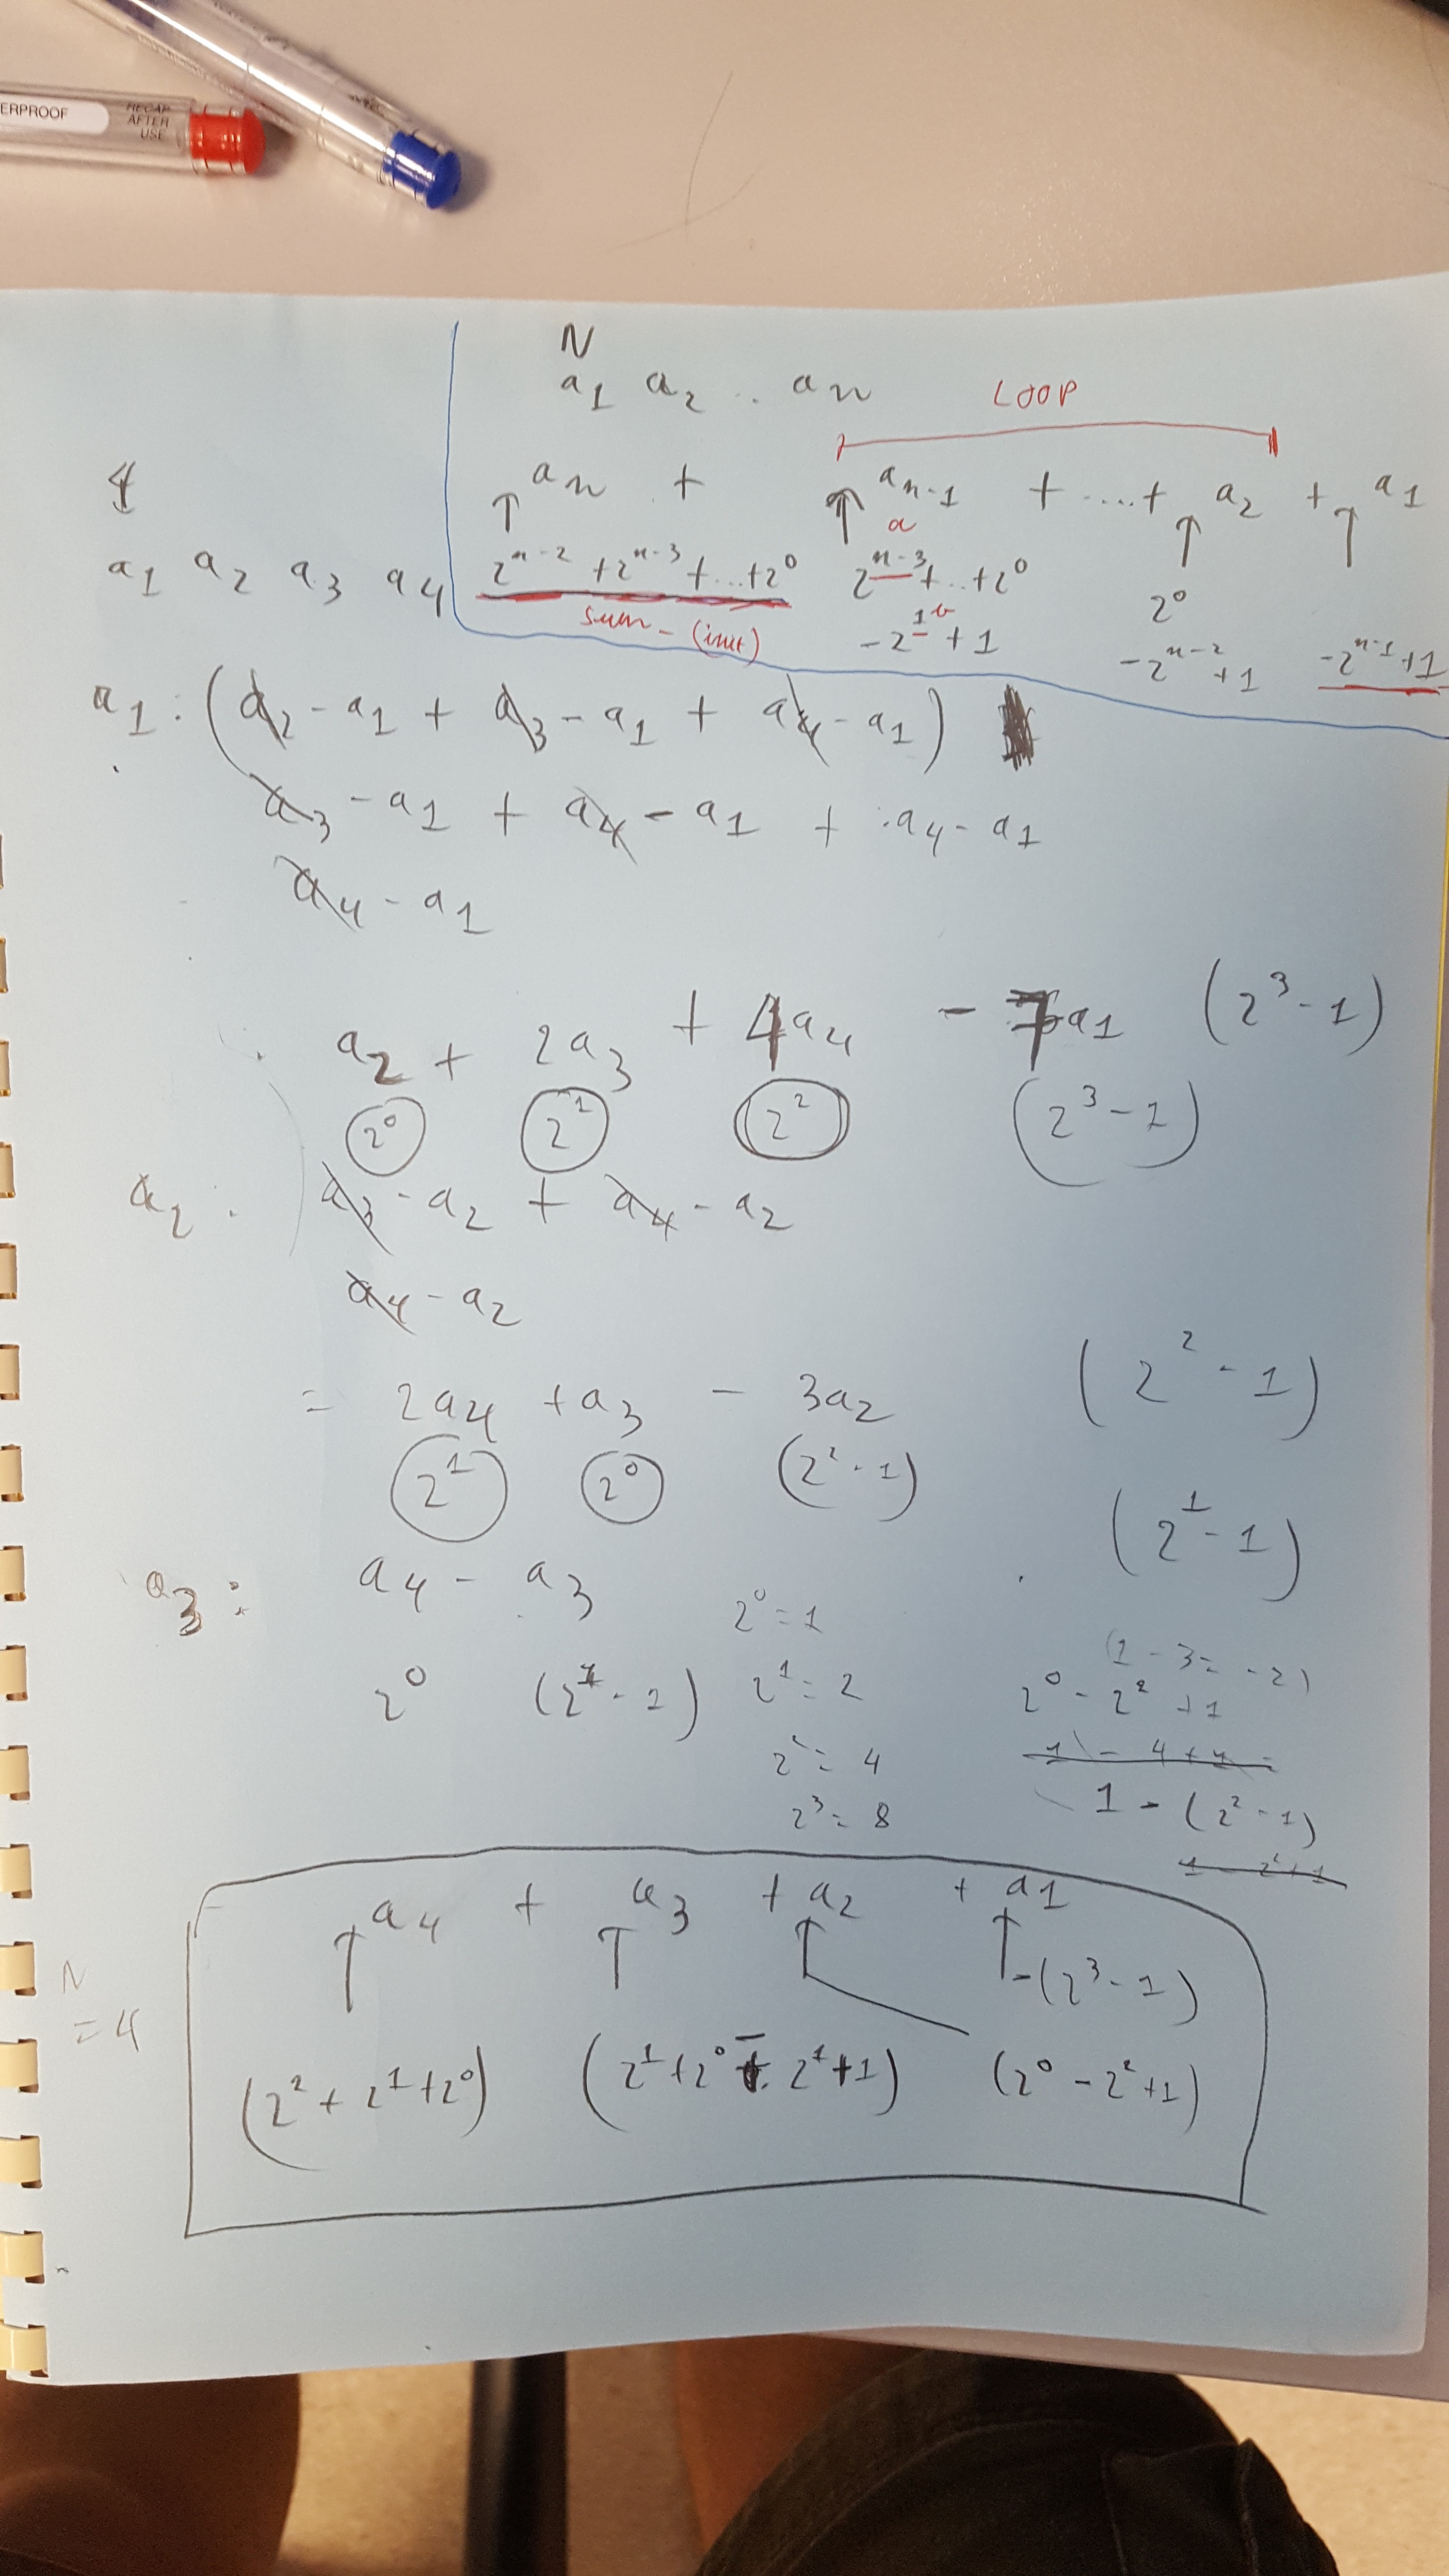 ERPROOF
RECAP
AFTER
USE
N
a1 a2 .. an
LOOP
an + an-1 + ....+ a2 + a1
a
4
a1 a2 a3 a4
2^n-2 + 2^n-3 + ... + 2^0
2^n-3 + .. + 2^0
2^0
sum - (init)
b
-2^1 + 1
-2^n-2 + 1
-2^n-1 + 1
a1 : (a2 - a1 + a3 - a1 + a4 - a1)
a3 - a1 + a4 - a1 + a4 - a1
a4 - a1
a2 + 2a3 + 4a4 - 7a1 (2^3 - 1)
2^0 2^1 2^2 (2^3 - 1)
a2 : a3 - a2 + a4 - a2
a4 - a2
= 2a4 + a3 - 3a2 (2^2 - 1)
2^1 2^0 (2^2 - 1)
(2^1 - 1)
a3 : a4 - a3
2^0 (2^1 - 1)
2^0 = 1
2^1 = 2
2^2 = 4
2^3 = 8
(1 - 3 = -2)
2^0 - 2^2 + 1
1 - (2^2 - 1)
a4 + a3 + a2 + a1
-(2^3 - 1)
N
= 4
(2^2 + 2^1 + 2^0) (2^1 + 2^0 - 2^1 + 1) (2^0 - 2^2 + 1)